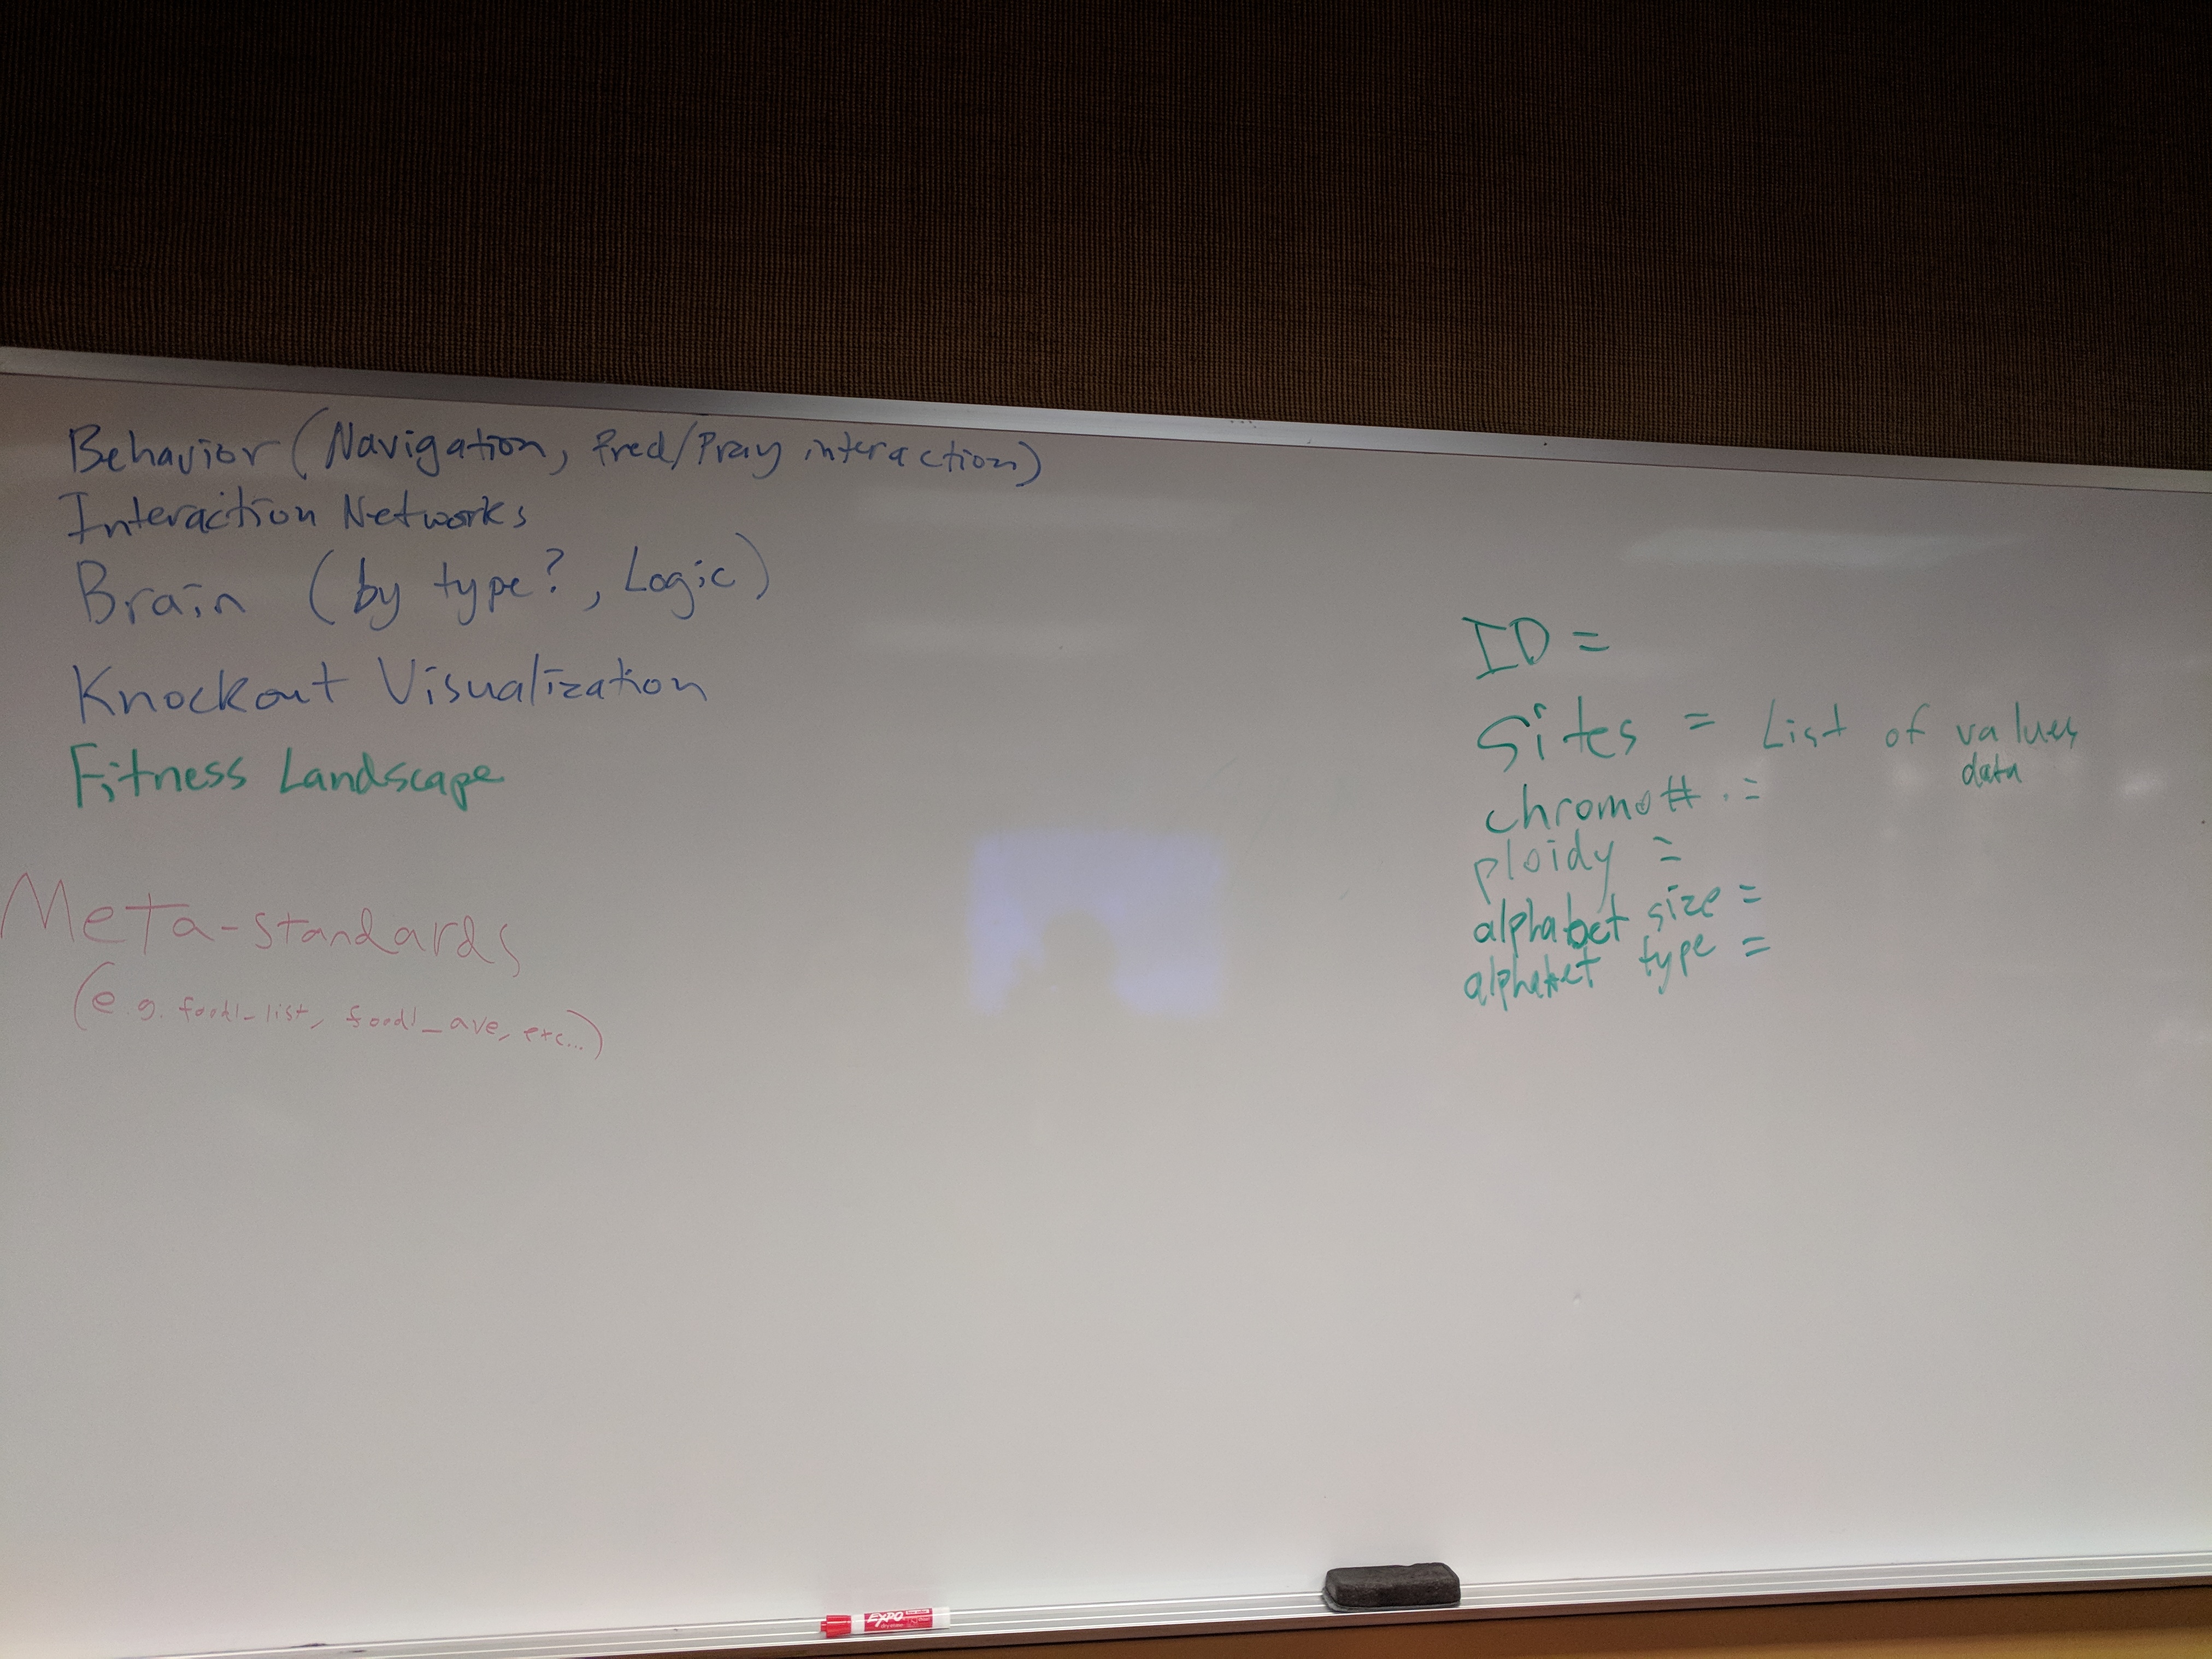 Behavior (Navigation, Pred/Pray interaction)
Interaction Networks
Brain (by type?, Logic)
Knockout Visualization
Fitness Landscape
Meta-standards
(e.g. food1_list, food1_ave, etc...)
ID =
Sites = List of values
data
chromo# =
ploidy =
alphabet size =
alphabet type =
EXPO